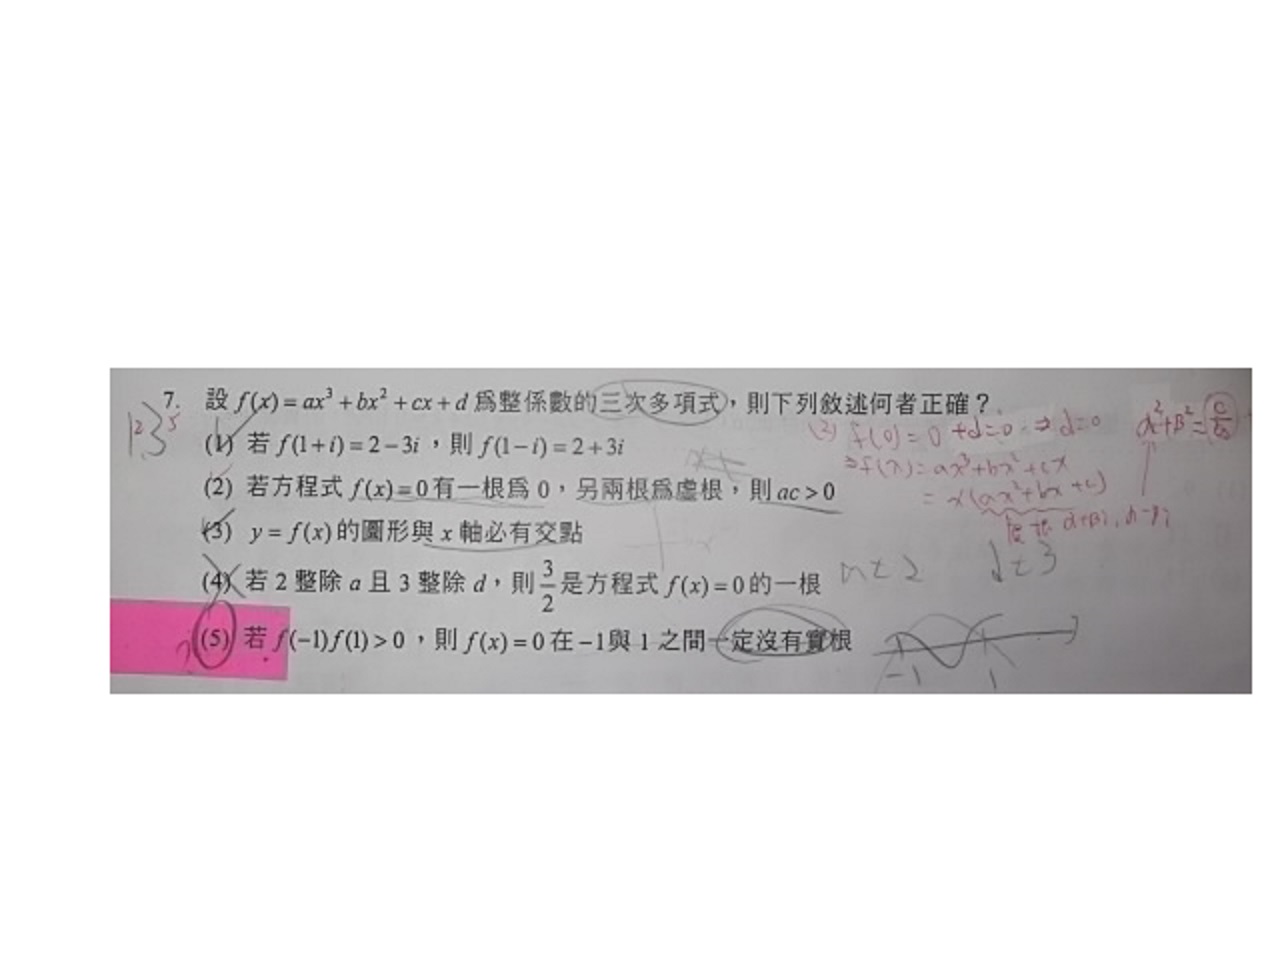 7. 設 f(x) = ax³ + bx² + cx + d 為整係數的三次多項式，則下列敘述何者正確？
(1) 若 f(1+i) = 2 − 3i，則 f(1−i) = 2 + 3i
(2) 若方程式 f(x) = 0 有一根為 0，另兩根為虛根，則 ac > 0
(3) y = f(x) 的圖形與 x 軸必有交點
(4) 若 2 整除 a 且 3 整除 d，則 3/2 是方程式 f(x) = 0 的一根
(5) 若 f(−1)f(1) > 0，則 f(x) = 0 在 −1 與 1 之間一定沒有實根
1 2 3 5
f(0) = 0 + d = 0 ⇒ d = 0
⇒ f(x) = ax³ + bx² + cx
= x(ax² + bx + c)
−1 1